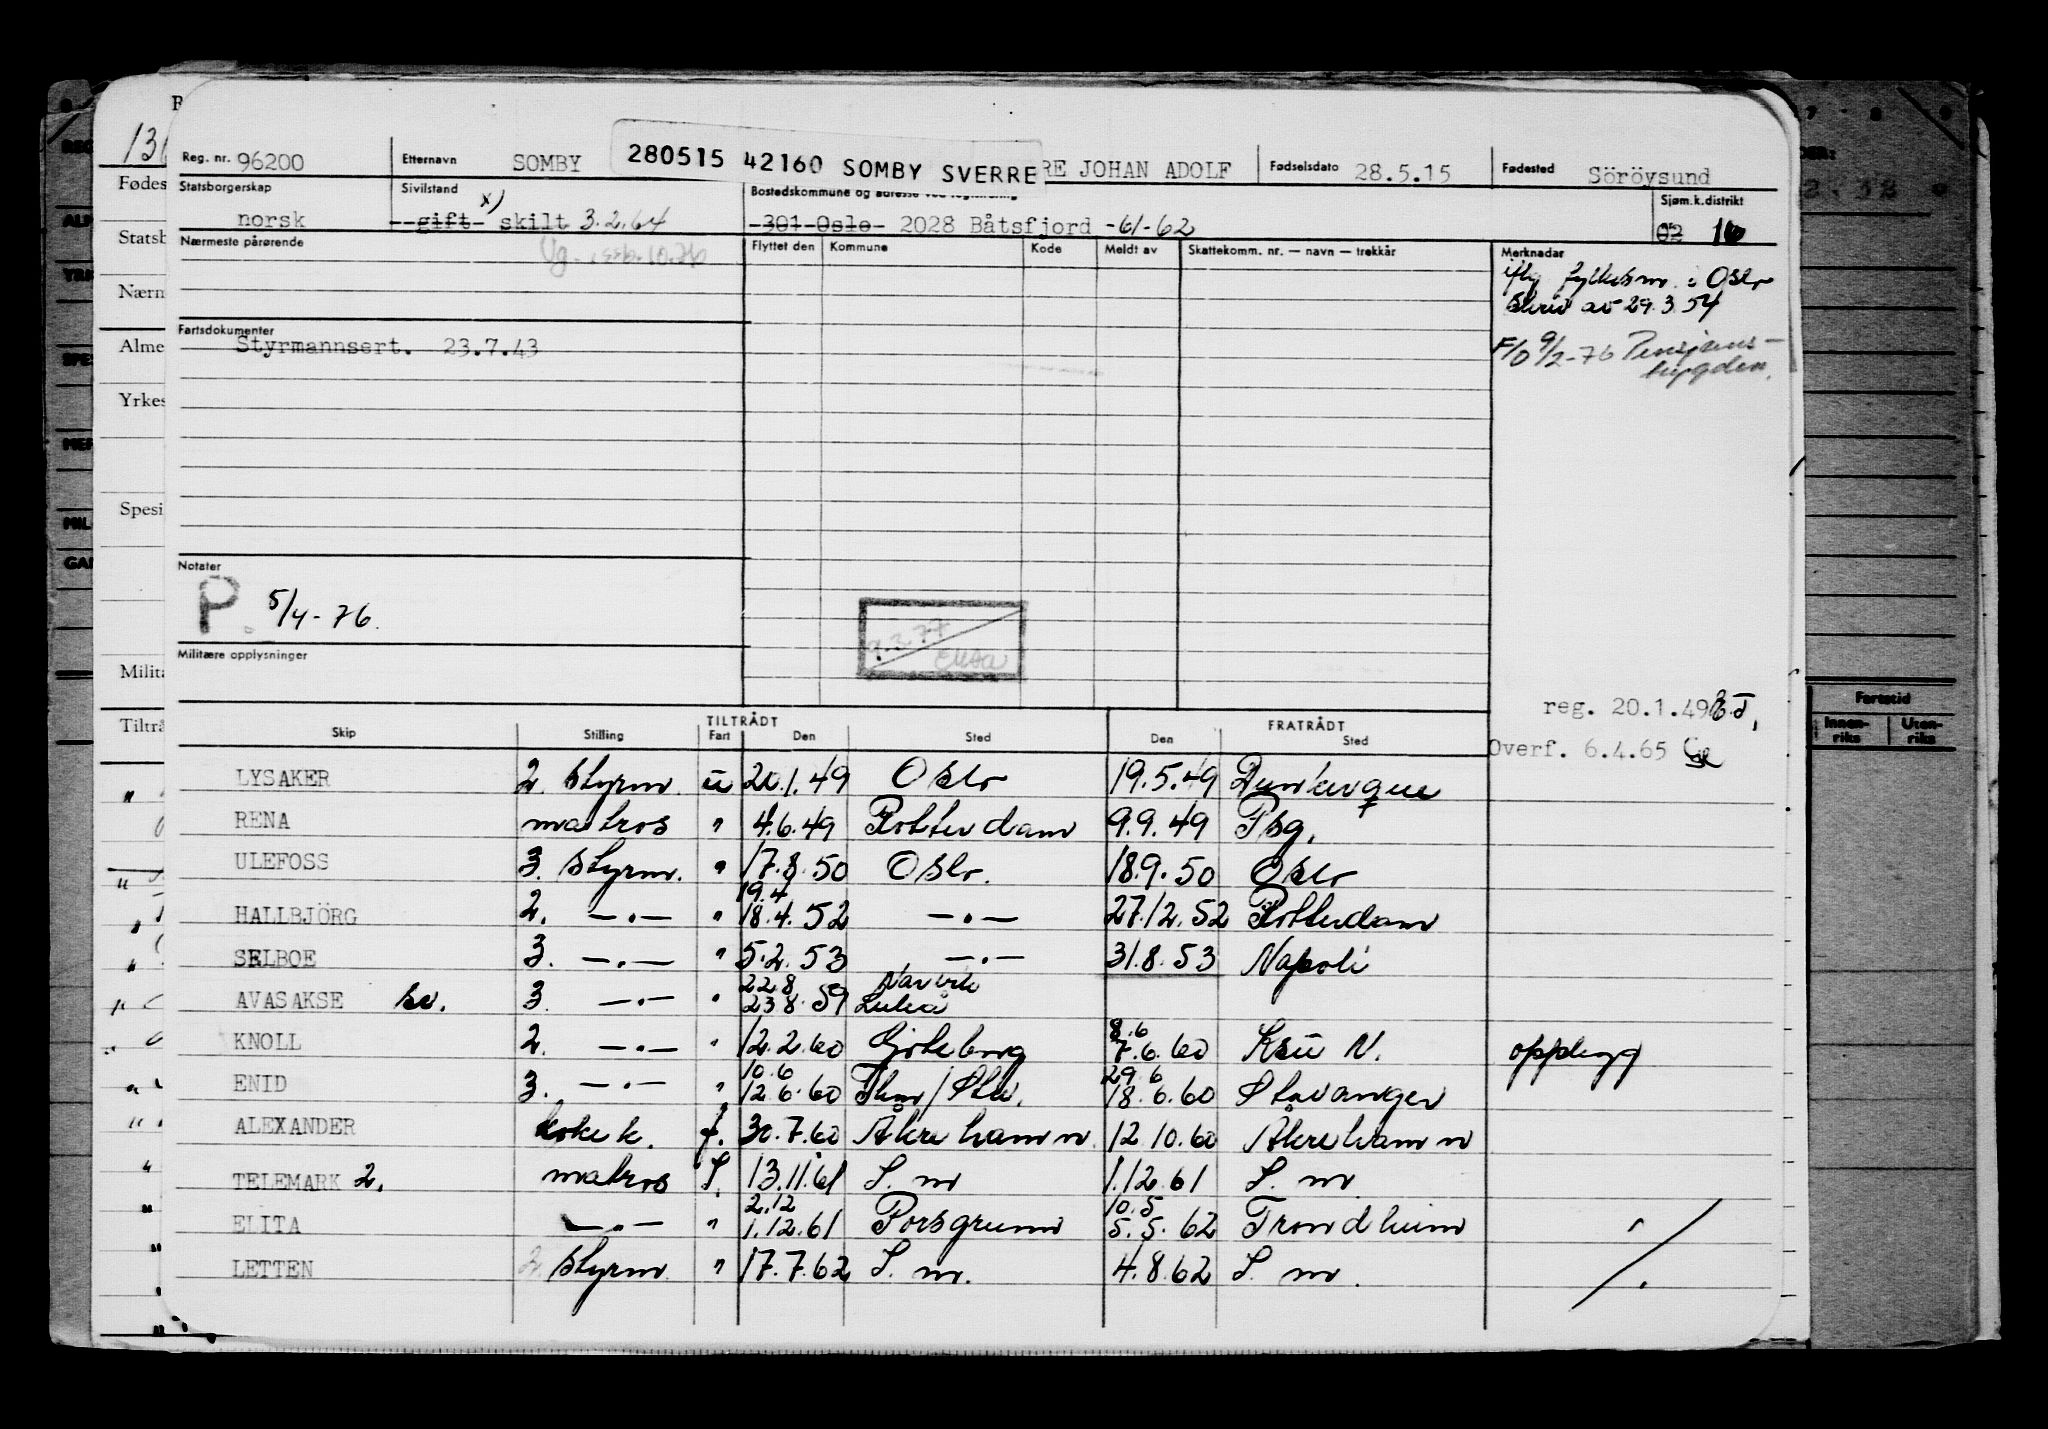 Reg. nr. 96200 Etternavn SOMBY 280515 42160 SOMBY SVERRE RE JOHAN ADOLF Fødselsdato 28.5.15 Fødested Söröysund
Statsborgerskap Sivilstand x) Bostedskommune og adresse ved registrering Sjøm.k.distrikt
norsk gift skilt 3.2.64 301 Oslo 2028 Båtsfjord -61-62 02 16
Nærmeste pårørende Flyttet den Kommune Kode Meldt av Skattekomm. nr. — navn — trekkår Merknader
i Oslo
av 29.3.54
Fartsdokumenter
Styrmannsert. 23.7.43
F/O 9/2-76 Pensjons-
trygden.
Notater
P. 5/4-76.
9.2.77
Militære opplysninger
reg. 20.1.49
Overf. 6.4.65
TILTRÅDT FRATRÅDT
Skip Stilling Fart Den Sted Den Sted
LYSAKER 2. styrm. u 20.1.49 Oslo 19.5.49 Dunkerque
RENA matros " 4.6.49 Rotterdam 9.9.49 Psg.
ULEFOSS 3. styrm. " 17.8.50 Oslo. 18.9.50 Oslo
19.4
HALLBJÖRG 2. —.— " 18.4.52 —.— 27.12.52 Rotterdam
SELBOE 3. —.— " 5.2.53 —.— 31.8.53 Napoli
22.8 Narvik
AVASAKSE sv. 3. —.— " 23.8.59 Luleå
8.6
KNOLL 2. —.— " 12.2.60 Göteborg 7.6.60 Krsü N. opplegg
10.6 29.6
ENID 3. —.— " 12.6.60 18.6.60 Stavanger
ALEXANDER kokk. f. 30.7.60 Åkrehamn 12.10.60 Åkrehamn
TELEMARK 2. matros I. 13.11.61 I. m 1.12.61 I. m.
2.12 10.5
ELITA —.— " 1.12.61 Porsgrunn 5.5.62 Trondheim
LETTEN 2. styrm. " 17.7.62 I. m. 4.8.62 I. m.
Fødes
Statsb
Nærm
Alme
Yrkes
Spesi
Milita
Tiltrå
Fartstid
Innen-
riks
Uten-
riks